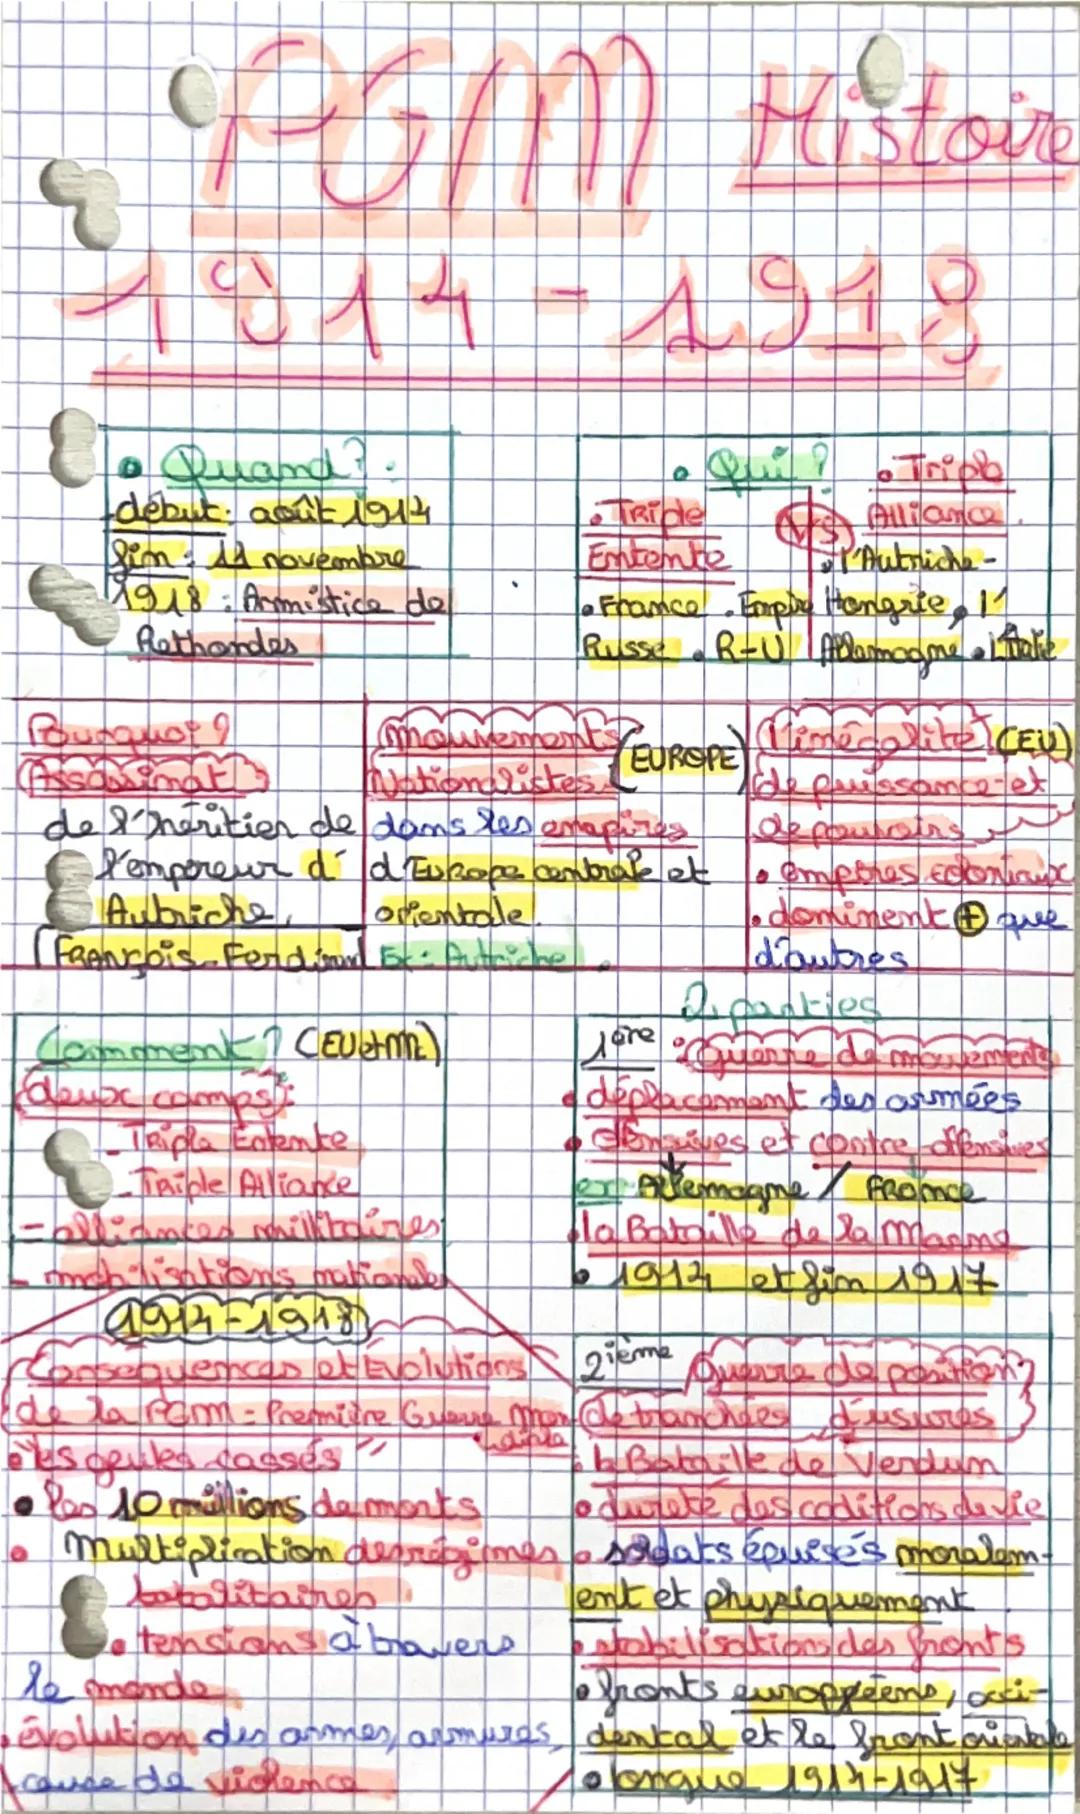 PGM Histoire
1914-1918
• Quand ? :
début : août 1914
fin : 11 novembre
1918 : Armistice de
Rethondes
• Qui ?
• Triple
Entente
• France . Empire
Russe . R-U
VS
• Triple
Alliance
• l'Autriche-
Hongrie, l'
Allemagne . L'Italie
Pourquoi ?
Assassinat
de l'héritier de
l'empereur d'
Autriche,
FRANÇOIS-Ferdinand
Mouvements
Nationalistes (EUROPE)
dans les empires
d'Europe centrale et
orientale.
Ex : Autriche
l'inégalité (EU)
de puissance et
de pouvoirs
• empires coloniaux
• dominent + que
d'autres
Comment ? (EU et M)
deux camps :
- Triple Entente
- Triple Alliance
- alliances millitaires
- mobilisations nationales
1914-1918
Consequences et Evolutions
de la PGM = Première Guerre Mondiale
• "les geules cassés"
• les 10 millions de morts
• Multiplication des régimes
totalitaires
• tensions à travers
le monde
• évolution des armes, armures,
cause de violence
2 parties
1ère : Guerre de mouvements
• déplacement des armées
• offensives et contre-offensives
ex : Allemagne / France
• la Bataille de la Marne
• 1914 et fin 1917
2ième Guerre de position
de tranchées d'usures
• la Bataille de Verdun
• dureté des coditions de vie
• soldats épuisés moralem-
ent et physiquement
• stabilisation des fronts
• fronts européens, occi-
dental et le front orientale
• longue 1914-1917